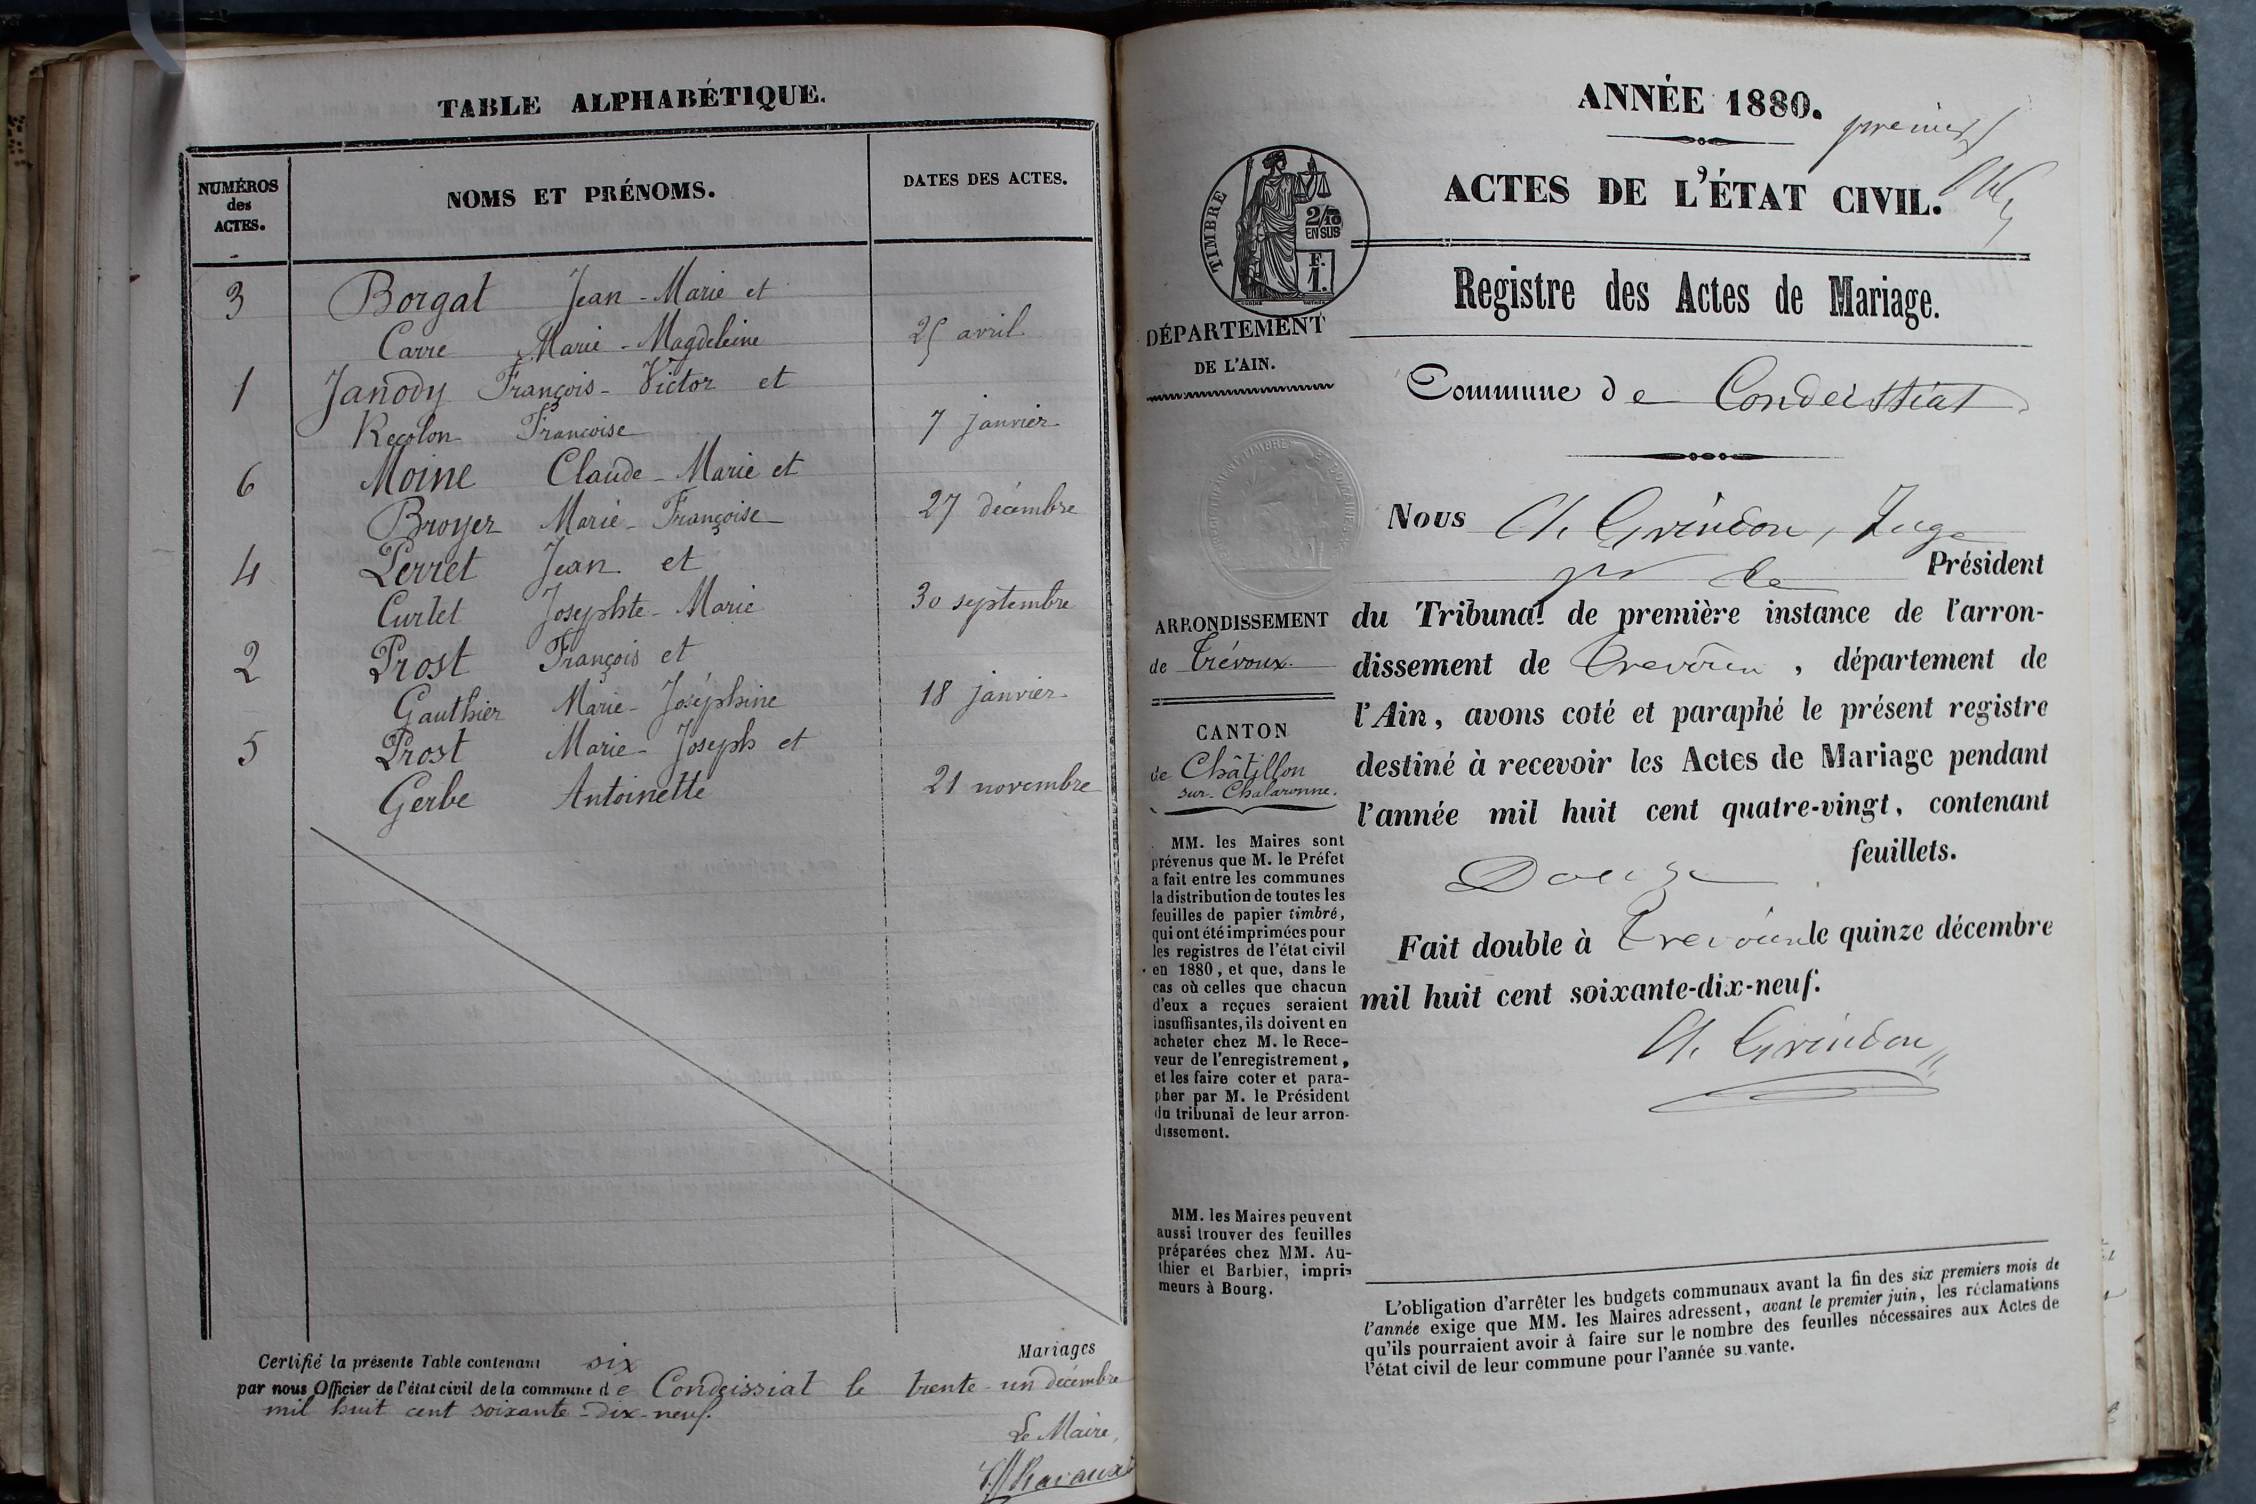 TABLE ALPHABÉTIQUE.
NUMÉROS
des
ACTES.
NOMS ET PRÉNOMS.
DATES DES ACTES.
3 Borgat Jean-Marie et
Carre Marie-Magdeleine 25 avril
1 Janody François-Victor et
Recolon Françoise 7 janvier
6 Moine Claude-Marie et
Broyer Marie-Françoise 27 décembre
4 Perret Jean et
Curlet Josephte-Marie 30 septembre
2 Prost François et
Gauthier Marie-Joséphine 18 janvier
5 Prost Marie-Joseph et
Gerbe Antoinette 21 novembre
Certifié la présente Table contenant six Mariages
par nous Officier de l'état civil de la commune de Condeissiat le trente-un décembre
mil huit cent soixante-dix-neuf.
Le Maire,
ANNÉE 1880.
premier
ACTES DE L'ÉTAT CIVIL.
TIMBRE
2/10
EN SUS
F.
1.
Registre des Actes de Mariage.
DÉPARTEMENT
DE L'AIN.
Commune de Condeissiat
Nous Ch. Grindon, Juge
pr le Président
du Tribunal de première instance de l'arron-
dissement de Trevoux, département de
l'Ain, avons coté et paraphé le présent registre
destiné à recevoir les Actes de Mariage pendant
l'année mil huit cent quatre-vingt, contenant
Douze feuillets.
Fait double à Trevoux le quinze décembre
mil huit cent soixante-dix-neuf.
Ch. Grindon
ARRONDISSEMENT
de Trévoux.
CANTON
de Châtillon
sur-Chalaronne.
MM. les Maires sont
prévenus que M. le Préfet
a fait entre les communes
la distribution de toutes les
feuilles de papier timbré,
qui ont été imprimées pour
les registres de l'état civil
en 1880, et que, dans le
cas où celles que chacun
d'eux a reçues seraient
insuffisantes, ils doivent en
acheter chez M. le Rece-
veur de l'enregistrement,
et les faire coter et para-
pher par M. le Président
du tribunal de leur arron-
dissement.
MM. les Maires peuvent
aussi trouver des feuilles
préparées chez MM. Au-
thier et Barbier, impri-
meurs à Bourg.
L'obligation d'arrêter les budgets communaux avant la fin des six premiers mois de
l'année exige que MM. les Maires adressent, avant le premier juin, les réclamations
qu'ils pourraient avoir à faire sur le nombre des feuilles nécessaires aux Actes de
l'état civil de leur commune pour l'année suivante.